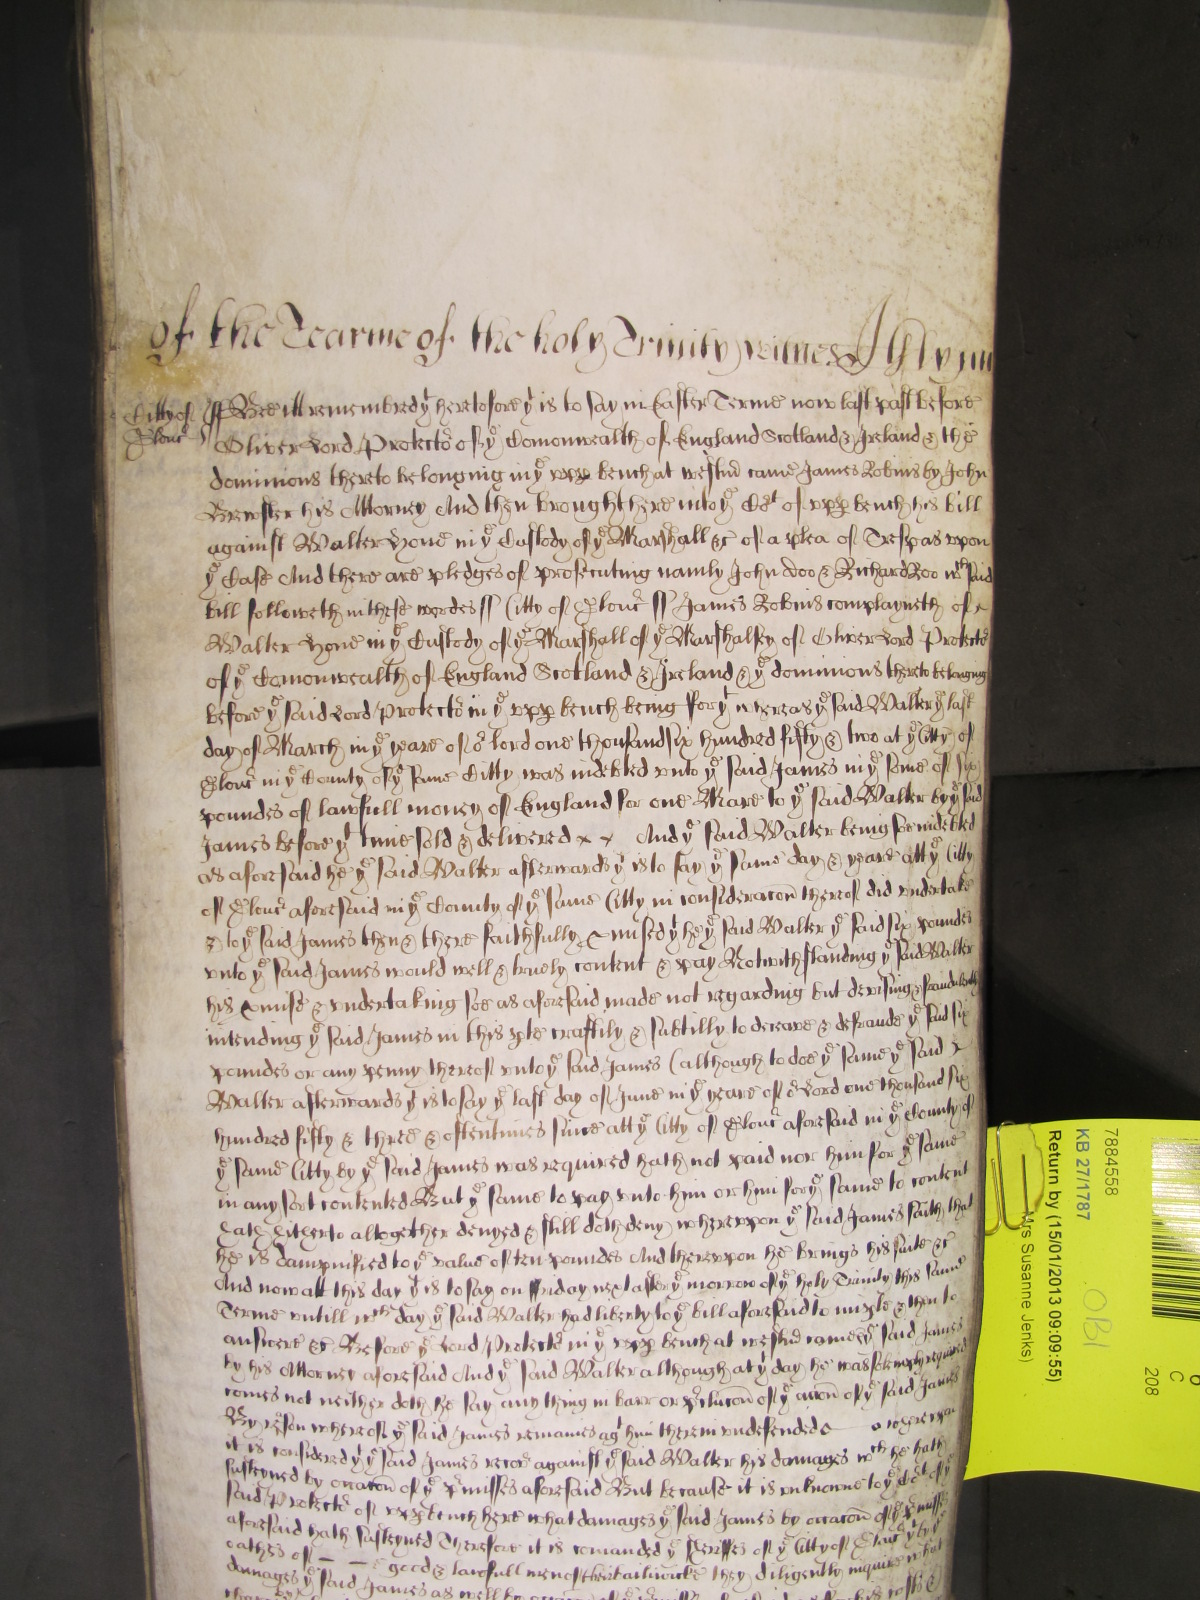 of the Tearme of the holy Trinity witnes
Citty of Glouc ss Bee itt remembred yt heretofore yt is to say in Easter Terme now last past before
Oliver Lord Protector of ye Comonwealth of England Scotland & Ireland & the
dominions thereto belonging in ye upp bench at westmr came James Robins by John
Brewster his Attorney And then brought here into ye Cort of upp bench his bill
against Walter in ye Custody of ye Marshall &c of a plea of Trespas upon
ye Case And there are pledges of prosecuting namly John Doo & Richard Roo wch said
bill followeth in these wordes ss Citty of Glouc ss James Robins complayneth of
Walter in ye Custody of ye Marshall of ye Marshalsey of Oliver Lord Protector
of ye Comonwealth of England Scotland & Ireland & ye dominions thereto belonging
before ye said Lord Protector in ye upp bench being for yt whereas ye said Walter ye last
day of March in ye yeare of or lord one thousand six hundred fifty & two at ye Citty of
Glouc in ye County of ye same Citty was indebted unto ye said James in ye some of six
poundes of lawfull money of England for one Mare to ye said Walter by ye said
James before yt time sold & delivered x x And ye said Walter being soe indebted
as aforesaid he ye said Walter afterwards yt is to say ye same day & yeare att ye Citty
of Glouc aforesaid in ye County of ye same Citty in consideracon thereof did undertake
& to ye said James then & there faithfully pmised yt he ye said Walter ye said six poundes
unto ye said James would well & truely content & pay Notwithstanding ye said Walter
his pmise & undertaking soe as aforesaid made not regarding but devising & fraudulently
intending ye said James in this pte craftily & subtilly to deceave & defraude ye said six
poundes or any penny thereof unto ye said James (although to doe ye same ye said x
Walter afterwards yt is to say ye last day of June in ye yeare of or Lord one thousand six
hundred fifty & three & oftentimes since att ye Citty of Glouc aforesaid in ye County of
ye same Citty by ye said James was required hath not paid nor him for ye same
in any sort contented But ye same to pay unto him or him for ye same to content
hath hitherto altogether denyed & still doth deny whereupon ye said James saith that
he is dampnified to ye value of ten poundes And thereupon he brings his suite &c
And now att this day yt is to say on ffriday next after ye morrow of ye holy Trinity this same
Terme untill wch day ye said Walter had liberty to ye bill aforesaid to imple & then to
answere &c Before ye Lord Protector in ye upp bench at westmr came ye said James
by his Attorney aforesaid And ye said Walter although at yt day he was solemply required
comes not neither doth he say any thing in barr or pclucon of ye accon of ye said James
By reson whereof ye said James remaines agt him therein undefended
it is considered yt ye said James recor against ye said Walter his damages wch he hath
susteyned by occacon of ye pmisses aforesaid But because it is unknowne to ye Cort of ye
said Protector of upp bench here what damages ye said James by occacon of ye pmisses
aforesaid hath susteyned Therefore it is comanded ye Sheriffes of ye Citty of Glouc yt by ye
oathes of good & lawfull men of their bailiwicke they diligently inquire what
damages ye said James as well by occacon
7884558
KB 27/1787
Return by (15/01/2013 09:09:55)
Mrs Susanne Jenks)
OBI
C
208